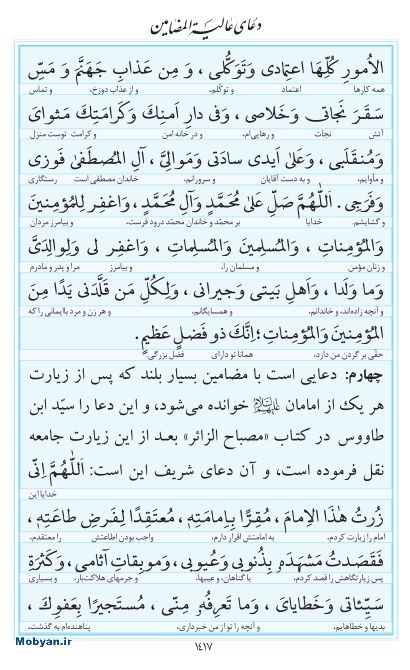 دعای عالیة المضامین
الاُمورِ کُلِّهَا اعتِمادی وَتَوَکُّلی ، وَ مِن عَذابِ جَهَنَّمَ وَ مَسِّ
همه کارها اعتماد و توکّلم، و از عذاب دوزخ، و تماس
سَقَرَ نَجاتی وَخَلاصی ، وَفی دارِ اَمنِكَ وَکَرامَتِكَ مَثوایَ
آتش نجات و رهایی‌ام، و در خانه امن و کرامت توست منزل
وَمُنقَلَبی ، وَعَلیٰ اَیدی سادَتی وَمَوالِیَّ ، آلِ المُصطَفیٰ فَوزی
و مأوایم، و به دست آقایان و سرورانم، خاندان مصطفی است رستگاری
وَفَرَجی . اَللّٰهُمَّ صَلِّ عَلیٰ مُحَمَّدٍ وَآلِ مُحَمَّدٍ ، وَاغفِر لِلمُؤمِنینَ
و گشایشم. خدایا بر محمّد و خاندان محمّد درود فرست، و بیامرز مردان
وَالمُؤمِناتِ ، وَالمُسلِمینَ وَالمُسلِماتِ ، وَاغفِر لی وَلِوالِدَیَّ
و زنان مؤمن و مسلمان را، و بیامرز مرا و پدر و مادرم
وَما وَلَدا ، وَاَهلِ بَیتی وَجیرانی ، وَلِکُلِّ مَن قَلَّدَنی یَدًا مِنَ
و آنچه زاده‌اند، و خاندانم، و همسایگانم، و هر زن و مرد باایمانی را که
المُؤمِنینَ وَالمُؤمِناتِ ؛ اِنَّكَ ذو فَضلٍ عَظیمٍ.
حقّی بر گردن من دارد، همانا تو دارای فضل بزرگی.
چهارم: دعایی است با مضامین بسیار بلند که پس از زیارت
هر یک از امامان علیهم‌السلام خوانده می‌شود، و این دعا را سیّد ابن
طاووس در کتاب «مصباح الزائر» بعد از این زیارت جامعه
نقل فرموده است، و آن دعای شریف این است: اَللّٰهُمَّ اِنّی
خدایا این
زُرتُ هٰذَا الاِمامَ ، مُقِرًّا بِاِمامَتِهِ ، مُعتَقِدًا لِفَرضِ طاعَتِهِ ،
امام را زیارت کردم، به امامتش اقرار دارم، واجب بودن اطاعتش را معتقدم،
فَقَصَدتُ مَشهَدَهُ بِذُنوبی وَعُیوبی ، وَموبِقاتِ آثامی ، وَکَثرَةِ
پس زیارتگاهش را قصد کردم، با گناهان، و عیبها، و جرمهای هلاکت‌بار، و بسیاری
سَیِّئاتی وَخَطایایَ ، وَما تَعرِفُهُ مِنّی ، مُستَجیرًا بِعَفوِكَ ،
بدیها و خطاهایم، و آنچه را تو از من خبرداری، پناهنده‌ام به گذشت،
۱۴۱۷
Mobyan.ir